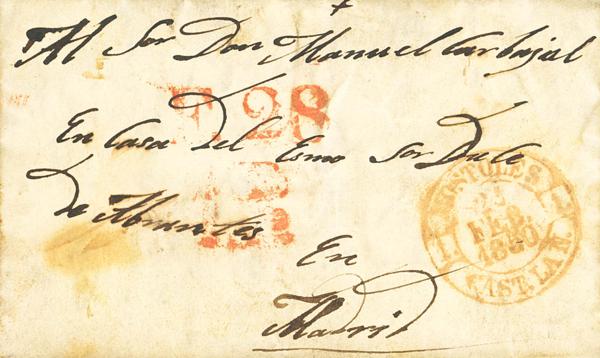 Al Sor Don Manuel Carbajal
F. 28
En Casa del Esmo Sor Duke
de Abrantes
En
Madrid
MOSTOLES
23
FEB.
1850
CAST. LA N.
1
1